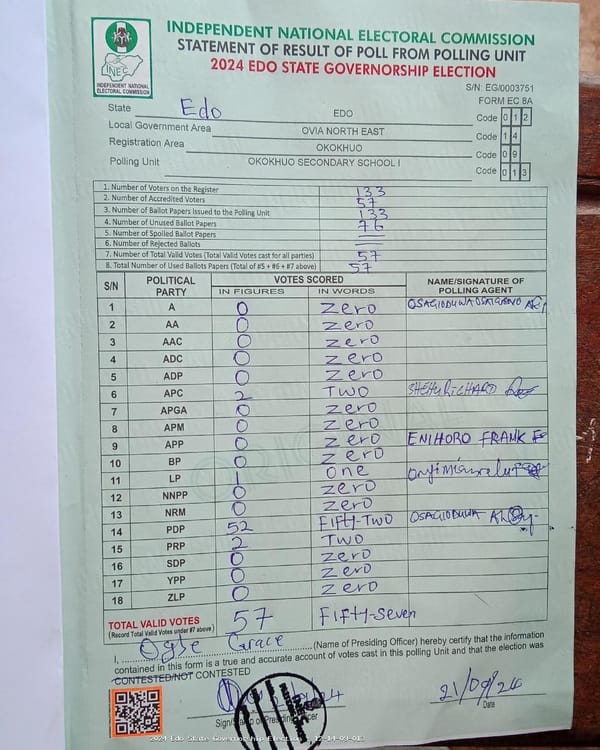 INDEPENDENT NATIONAL ELECTORAL COMMISSION
STATEMENT OF RESULT OF POLL FROM POLLING UNIT
2024 EDO STATE GOVERNORSHIP ELECTION
INEC
INDEPENDENT NATIONAL ELECTORAL COMMISSION
S/N: EG/0003751
FORM EC 8A
State Edo EDO Code 0 1 2
Local Government Area OVIA NORTH EAST Code 1 4
Registration Area OKOKHUO Code 0 9
Polling Unit OKOKHUO SECONDARY SCHOOL I Code 0 1 3
1. Number of Voters on the Register 133
2. Number of Accredited Voters 57
3. Number of Ballot Papers Issued to the Polling Unit 133
4. Number of Unused Ballot Papers 76
5. Number of Spoiled Ballot Papers
6. Number of Rejected Ballots
7. Number of Total Valid Votes (Total Valid Votes cast for all parties) 57
8. Total Number of Used Ballots Papers (Total of #5 + #6 + #7 above) 57
S/N POLITICAL PARTY VOTES SCORED NAME/SIGNATURE OF POLLING AGENT
IN FIGURES IN WORDS
1 A 0 Zero
2 AA 0 Zero
3 AAC 0 Zero
4 ADC 0 Zero
5 ADP 0 Zero
6 APC 2 TWO SHEHU RICHARD
7 APGA 0 Zero
8 APM 0 Zero
9 APP 0 Zero ENIHORO FRANK
10 BP 0 Zero
11 LP 1 one
12 NNPP 0 Zero
13 NRM 0 Zero
14 PDP 52 Fifty-Two OSAGIODUWA
15 PRP 2 TWO
16 SDP 0 Zero
17 YPP 0 Zero
18 ZLP 0 Zero
TOTAL VALID VOTES 57 Fifty-Seven
(Record Total Valid Votes under #7 above)
I, Ogbe Grace (Name of Presiding Officer) hereby certify that the information
contained in this form is a true and accurate account of votes cast in this polling Unit and that the election was
CONTESTED/NOT CONTESTED
21/09/24
Sign/Stamp of Presiding Officer
Date